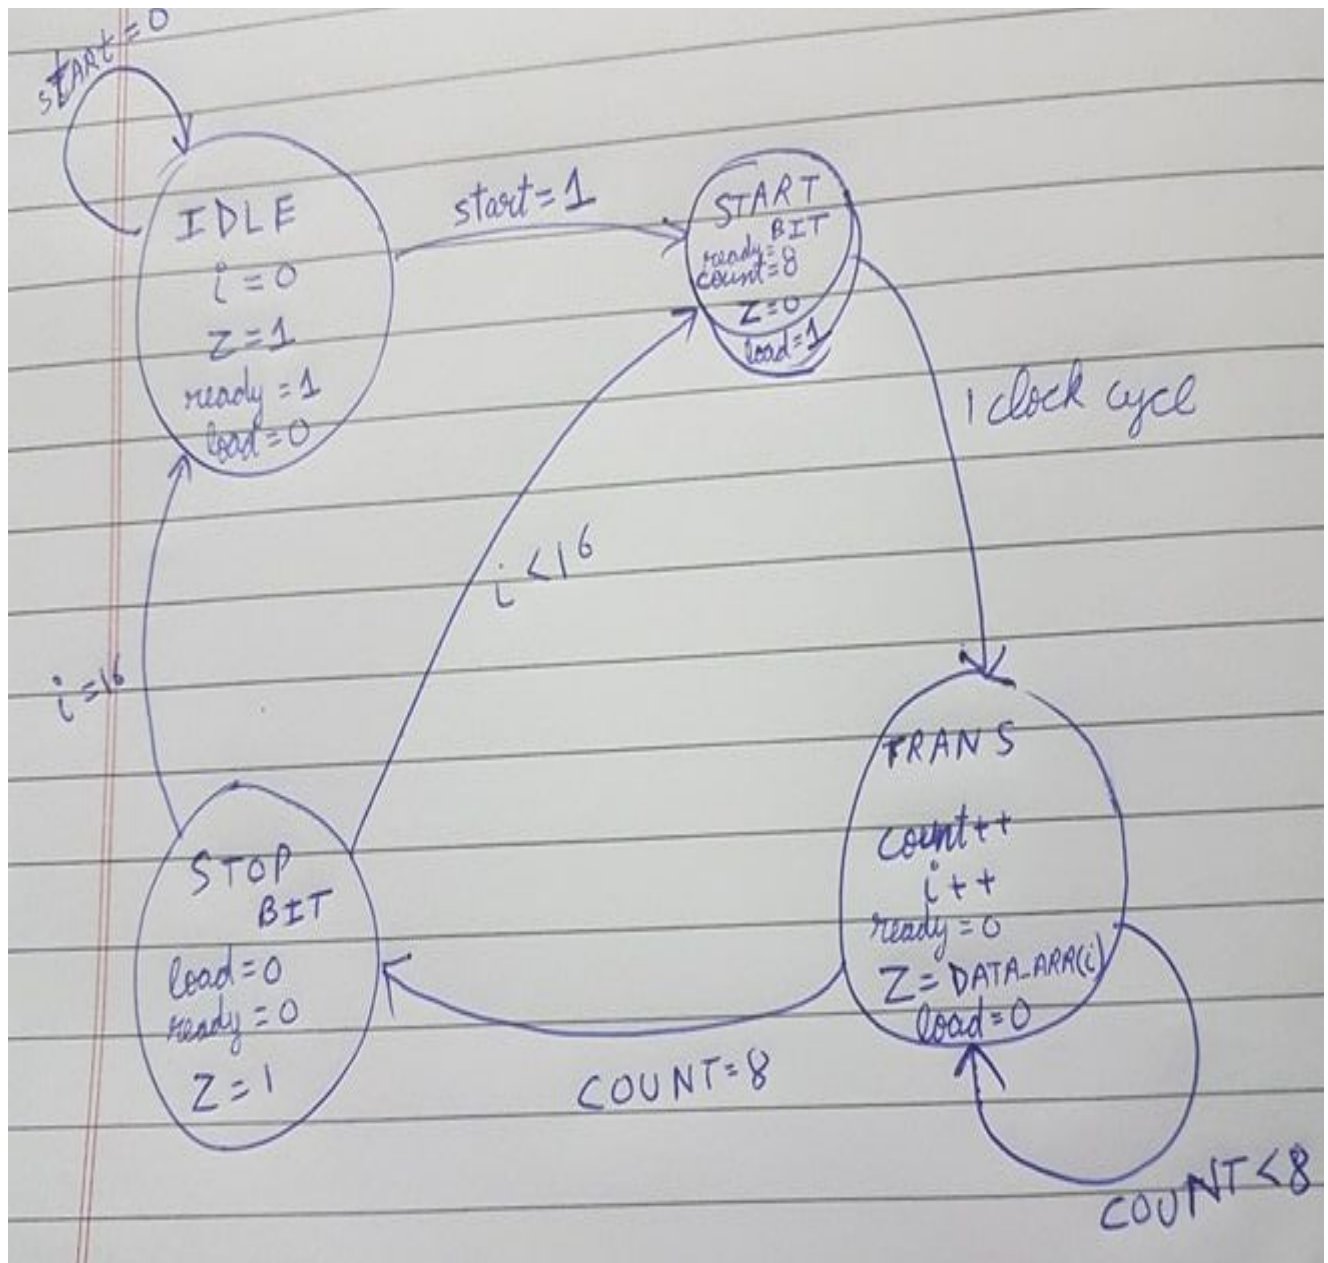 start=0
IDLE
i=0
Z=1
ready=1
load=0
start=1
START
BIT
ready=
count=8
Z=0
load=1
1 clock cycl
i<16
i=16
TRANS
count++
i++
ready=0
Z=DATA_ARR(i)
load=0
STOP
BIT
load=0
ready=0
Z=1
COUNT=8
COUNT<8